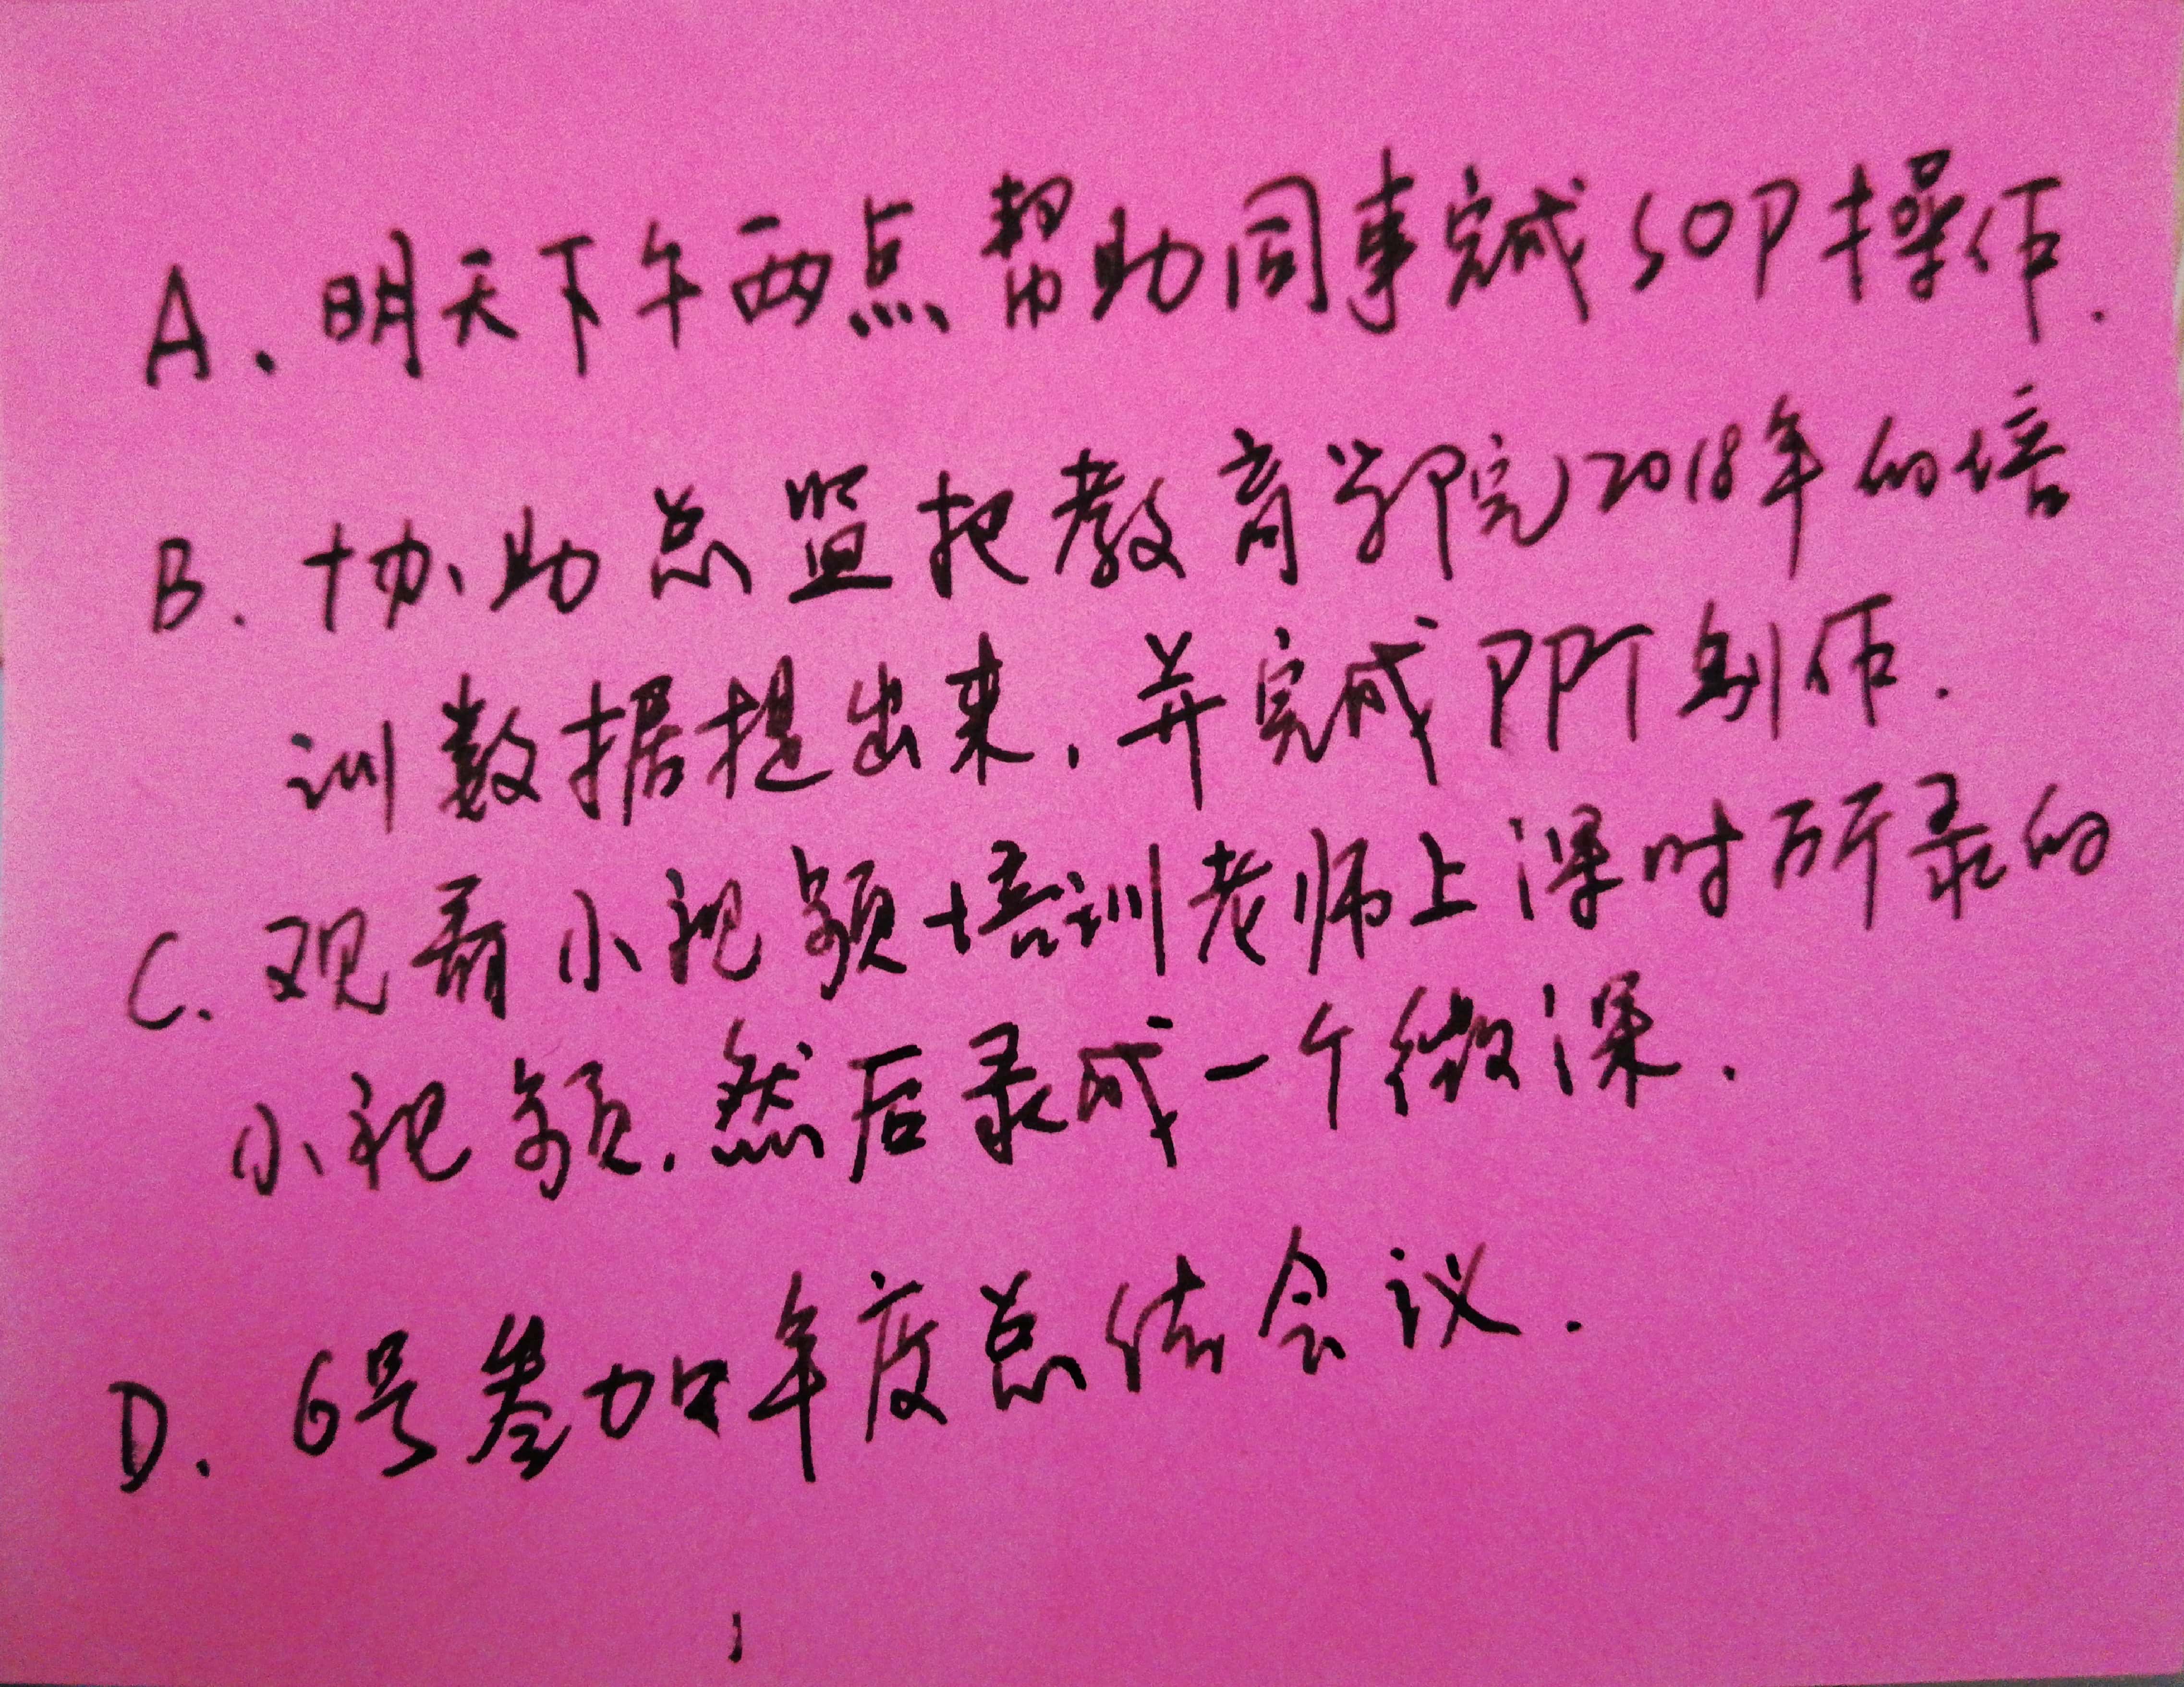 A、明天下午两点帮助同事完成SOP操作.
B. 协助总监把教育学院2018年的培
训数据提出来.并完成PPT制作.
C. 观看小视频培训老师上课时所录的
小视频.然后录成一个微课.
D. 6号参加年度总结会议.